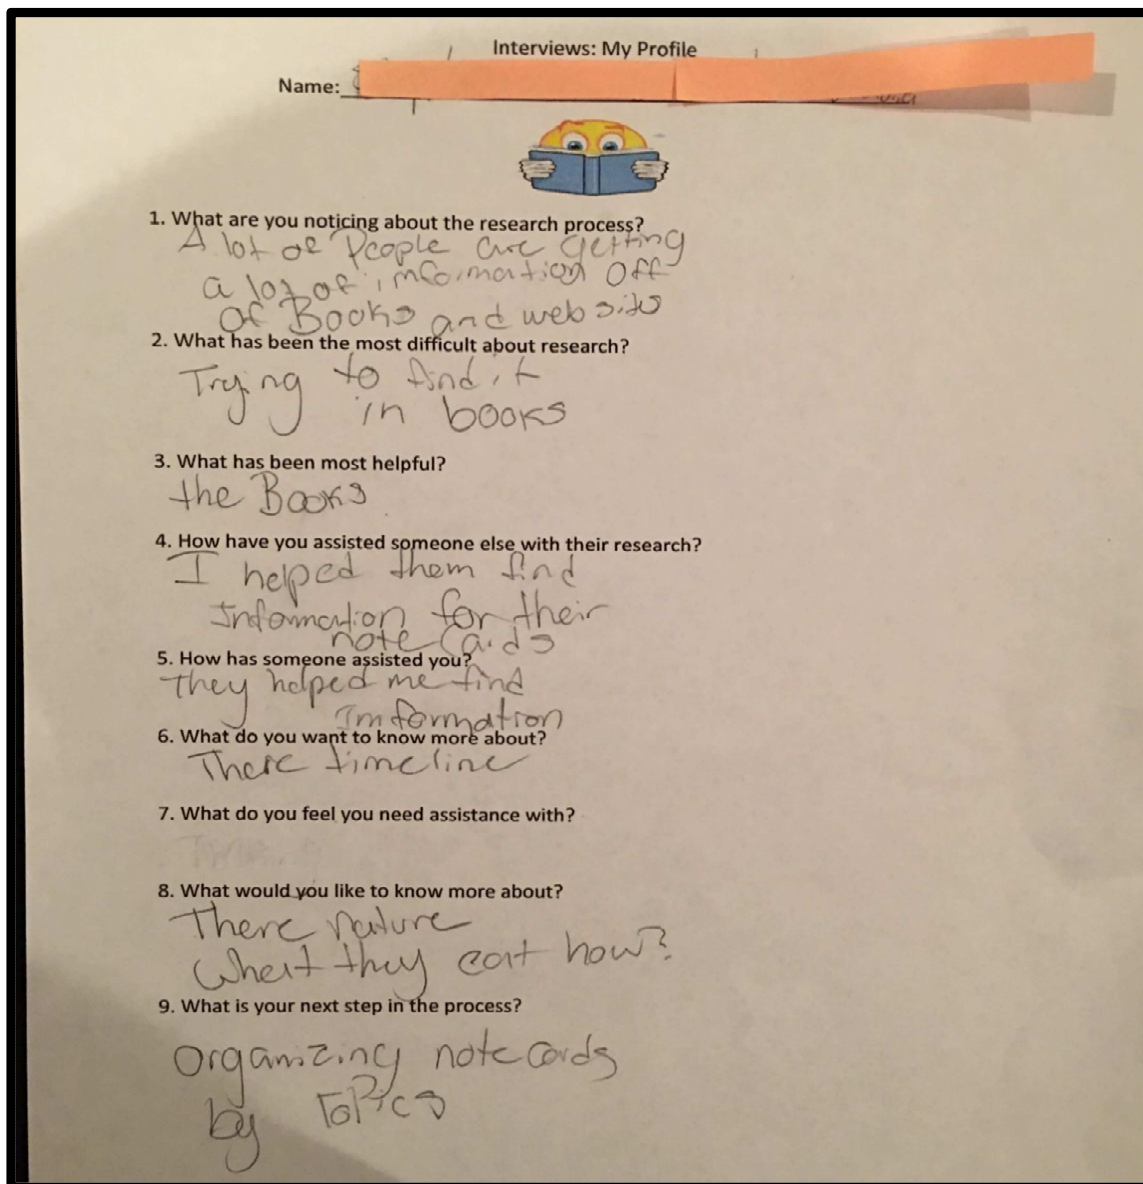 Interviews: My Profile
Name:
1. What are you noticing about the research process?
A lot of People are getting
a lot of information off
of Books and web sits
2. What has been the most difficult about research?
Trying to find it
in books
3. What has been most helpful?
the Books
4. How have you assisted someone else with their research?
I helped them find
Information for their
note cards
5. How has someone assisted you?
They helped me find
Imformation
6. What do you want to know more about?
There timeline
7. What do you feel you need assistance with?
8. What would you like to know more about?
There nature
What they eat how?
9. What is your next step in the process?
organizing note cards
by Topics